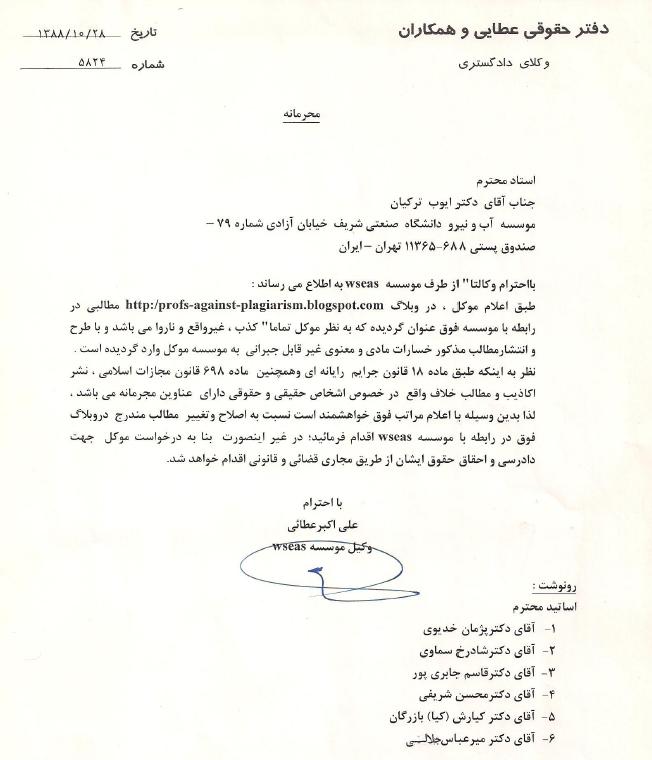 دفتر حقوقی عطایی و همکاران
وکلای دادگستری
تاریخ ۱۳۸۸/۱۰/۲۸
شماره ۵۸۲۴
محرمانه
استاد محترم
جناب آقای دکتر ایوب ترکیان
موسسه آب و نیرو دانشگاه صنعتی شریف خیابان آزادی شماره ۷۹ –
صندوق پستی ۶۸۸-۱۱۳۶۵ تهران – ایران
بااحترام وکالتا" از طرف موسسه wseas به اطلاع می رساند :
طبق اعلام موکل ، در وبلاگ http:/profs-against-plagiarism.blogspot.com مطالبی در
رابطه با موسسه فوق عنوان گردیده که به نظر موکل تماما" کذب ، غیرواقع و ناروا می باشد و با طرح
و انتشارمطالب مذکور خسارات مادی و معنوی غیر قابل جبرانی به موسسه موکل وارد گردیده است .
نظر به اینکه طبق ماده ۱۸ قانون جرایم رایانه ای وهمچنین ماده ۶۹۸ قانون مجازات اسلامی ، نشر
اکاذیب و مطالب خلاف واقع در خصوص اشخاص حقیقی و حقوقی دارای عناوین مجرمانه می باشد ،
لذا بدین وسیله با اعلام مراتب فوق خواهشمند است نسبت به اصلاح وتغییر مطالب مندرج دروبلاگ
فوق در رابطه با موسسه wseas اقدام فرمائید؛ در غیر اینصورت بنا به درخواست موکل جهت
دادرسی و احقاق حقوق ایشان از طریق مجاری قضائی و قانونی اقدام خواهد شد.
با احترام
علی اکبرعطائی
وکیل موسسه wseas
رونوشت :
اساتید محترم
۱- آقای دکترپژمان خدیوی
۲- آقای دکترشادرخ سماوی
۳- آقای دکترقاسم جابری پور
۴- آقای دکترمحسن شریفی
۵- آقای دکتر کیارش (کیا) بازرگان
۶- آقای دکتر میرعباس جلالی